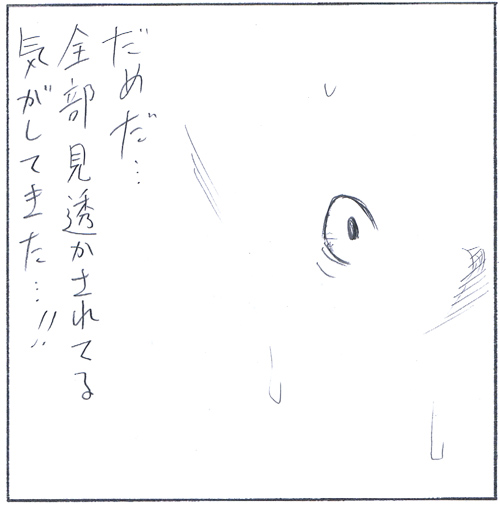 だめだ…
全部見透かされてる
気がしてきた…!!